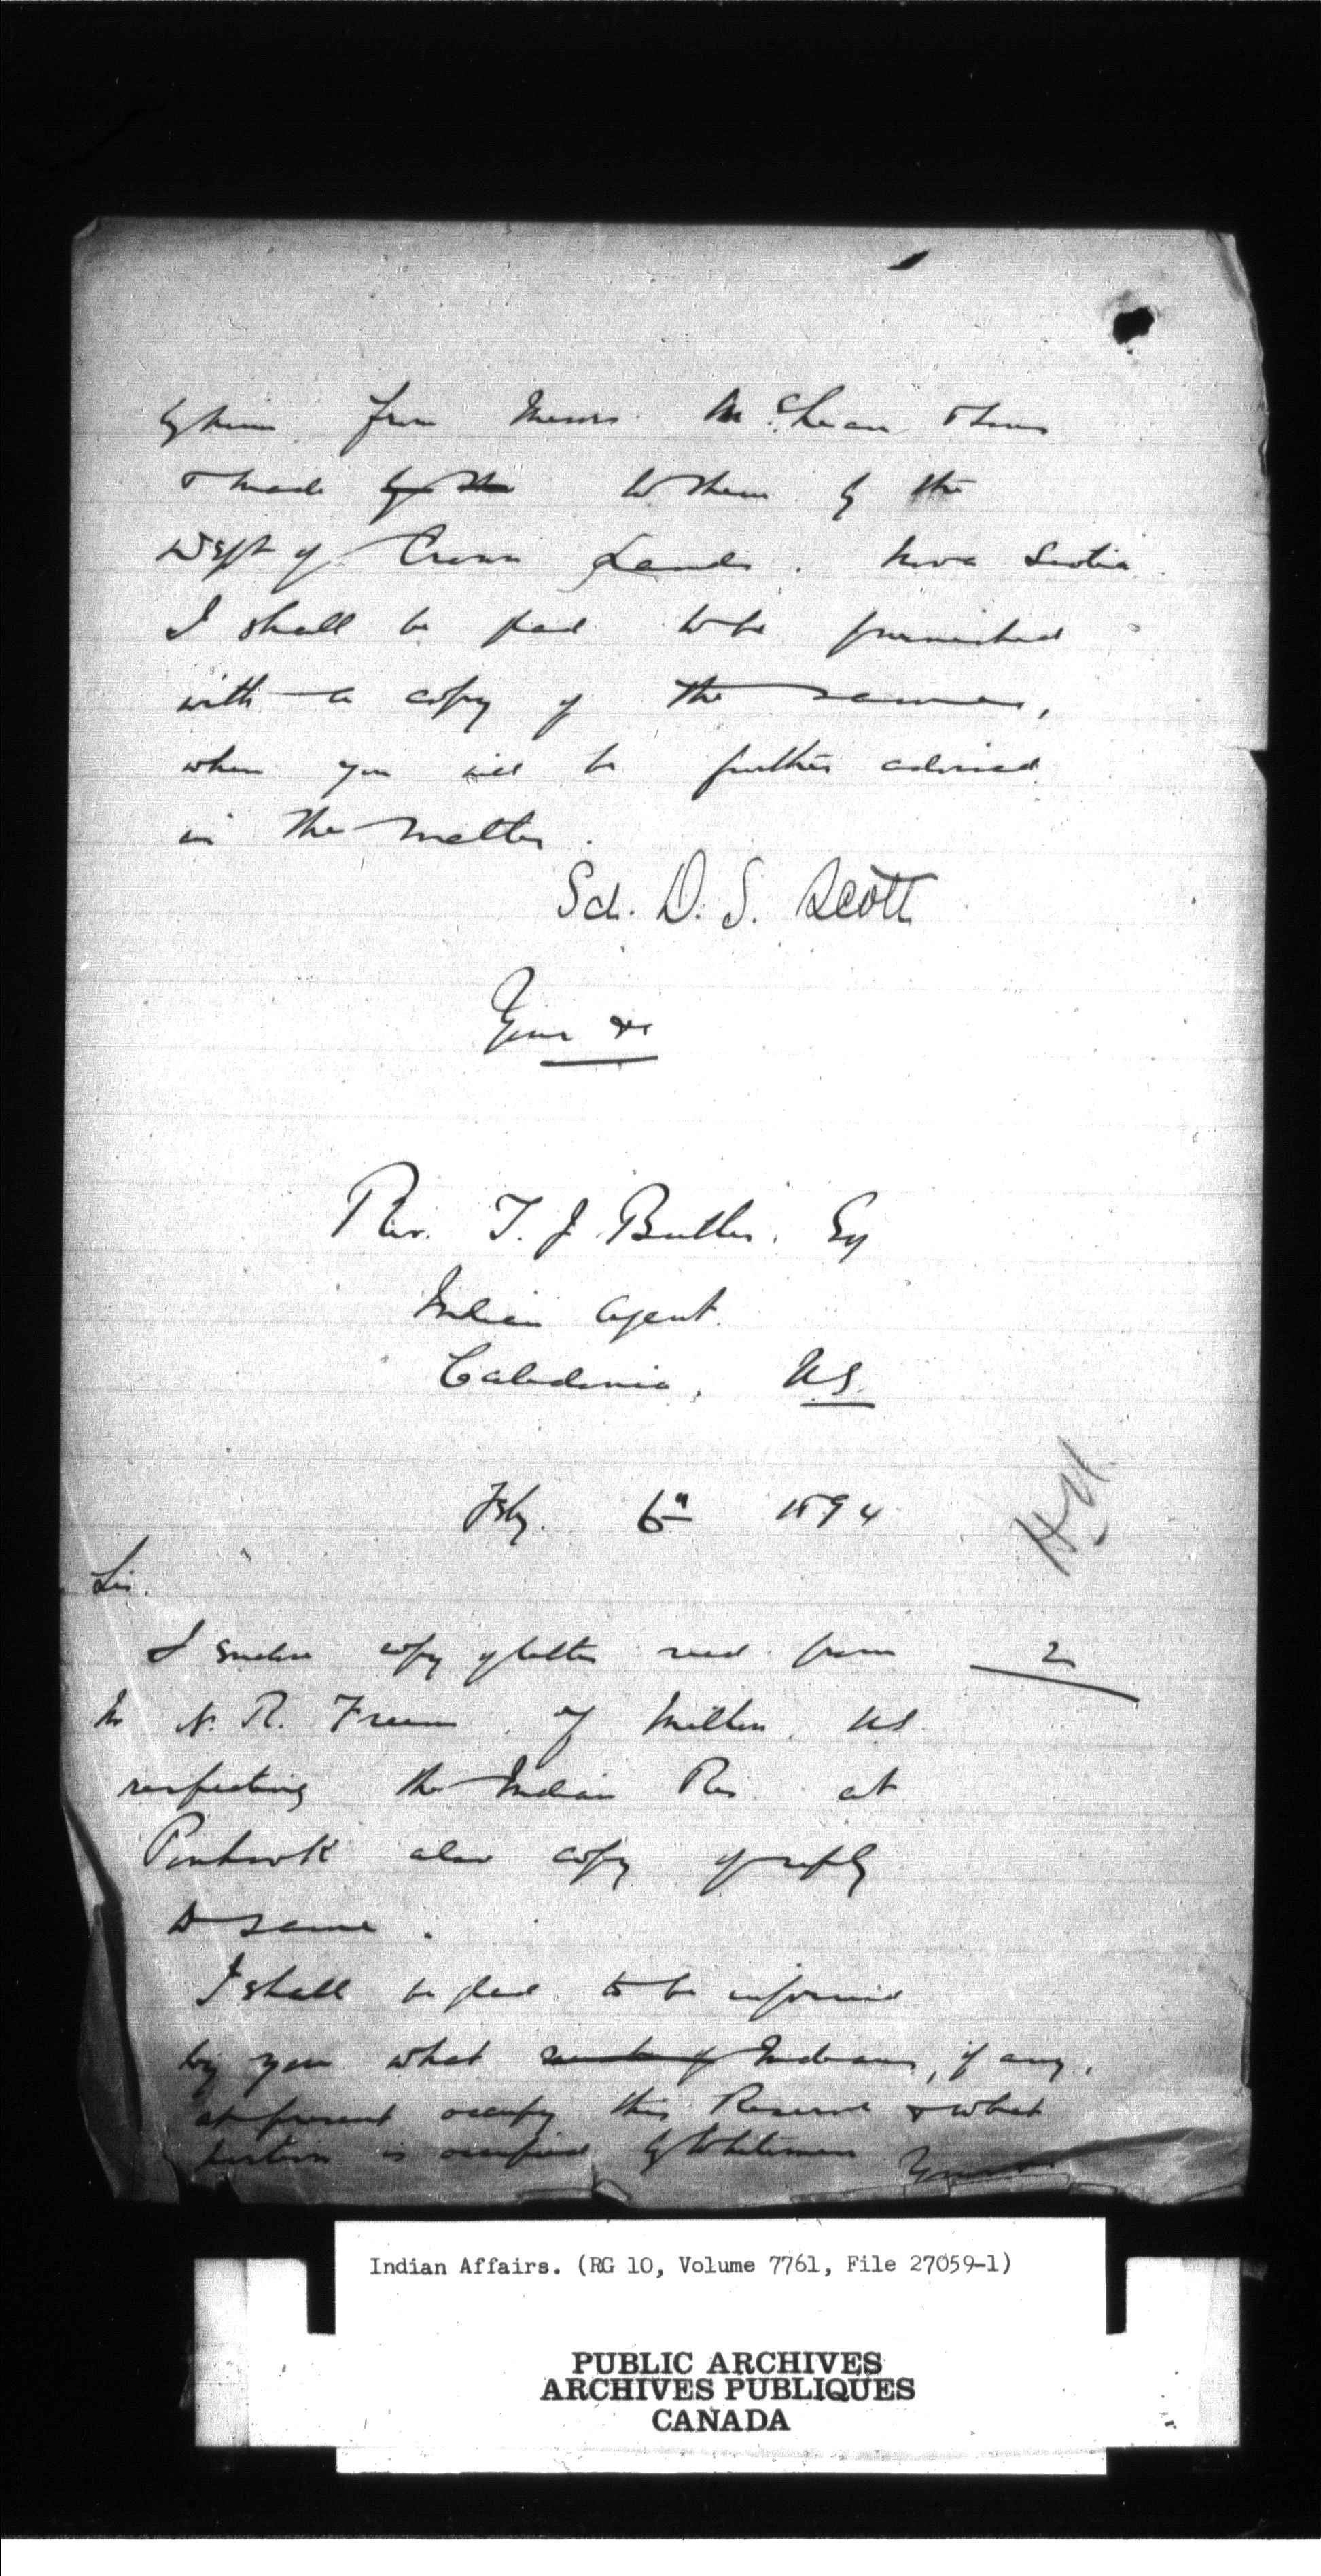 by him from Messrs. McLean & Sons
& made by the to them by the
Dept of Crown Lands. Nova Scotia.
I shall be glad to be furnished
with a copy of the same,
when you will be further advised
in the matter.
Sd. D. S. Scott
Your &c
Rev. T. J. Butler. Esq
Indian Agent.
Caledonia, N.S.
Feby. 6th 1894
Sir.
I enclose copy of letter recd. from 2
Mr N. R. Freeman, of Milton, N.S.
respecting the Indian Res. at
Ponhook also copy of reply
to same.
I shall be glad to be informed
by you what number of Indians, if any,
at present occupy this Reserve & what
portion is occupied by Whitemen
Indian Affairs. (RG 10, Volume 7761, File 27059-1)
PUBLIC ARCHIVES
ARCHIVES PUBLIQUES
CANADA